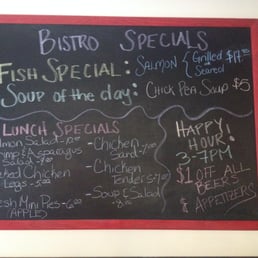 BISTRO SPECIALS
FISH SPECIAL: SALMON { Grilled $17.95
Seared
SOUP OF THE DAY: CHICK PEA SOUP $5
LUNCH SPECIALS
Salmon Salad
Shrimp & Asparagus
Salad
Baked Chicken
Legs - 5.00
Fresh Mini Pies - 6.00
(APPLE)
- Chicken
Sand - 7.00
- Chicken
Tenders
- Soup & Salad
HAPPY
HOUR!
3-7PM
$1 OFF ALL
BEERS
& APPETIZERS